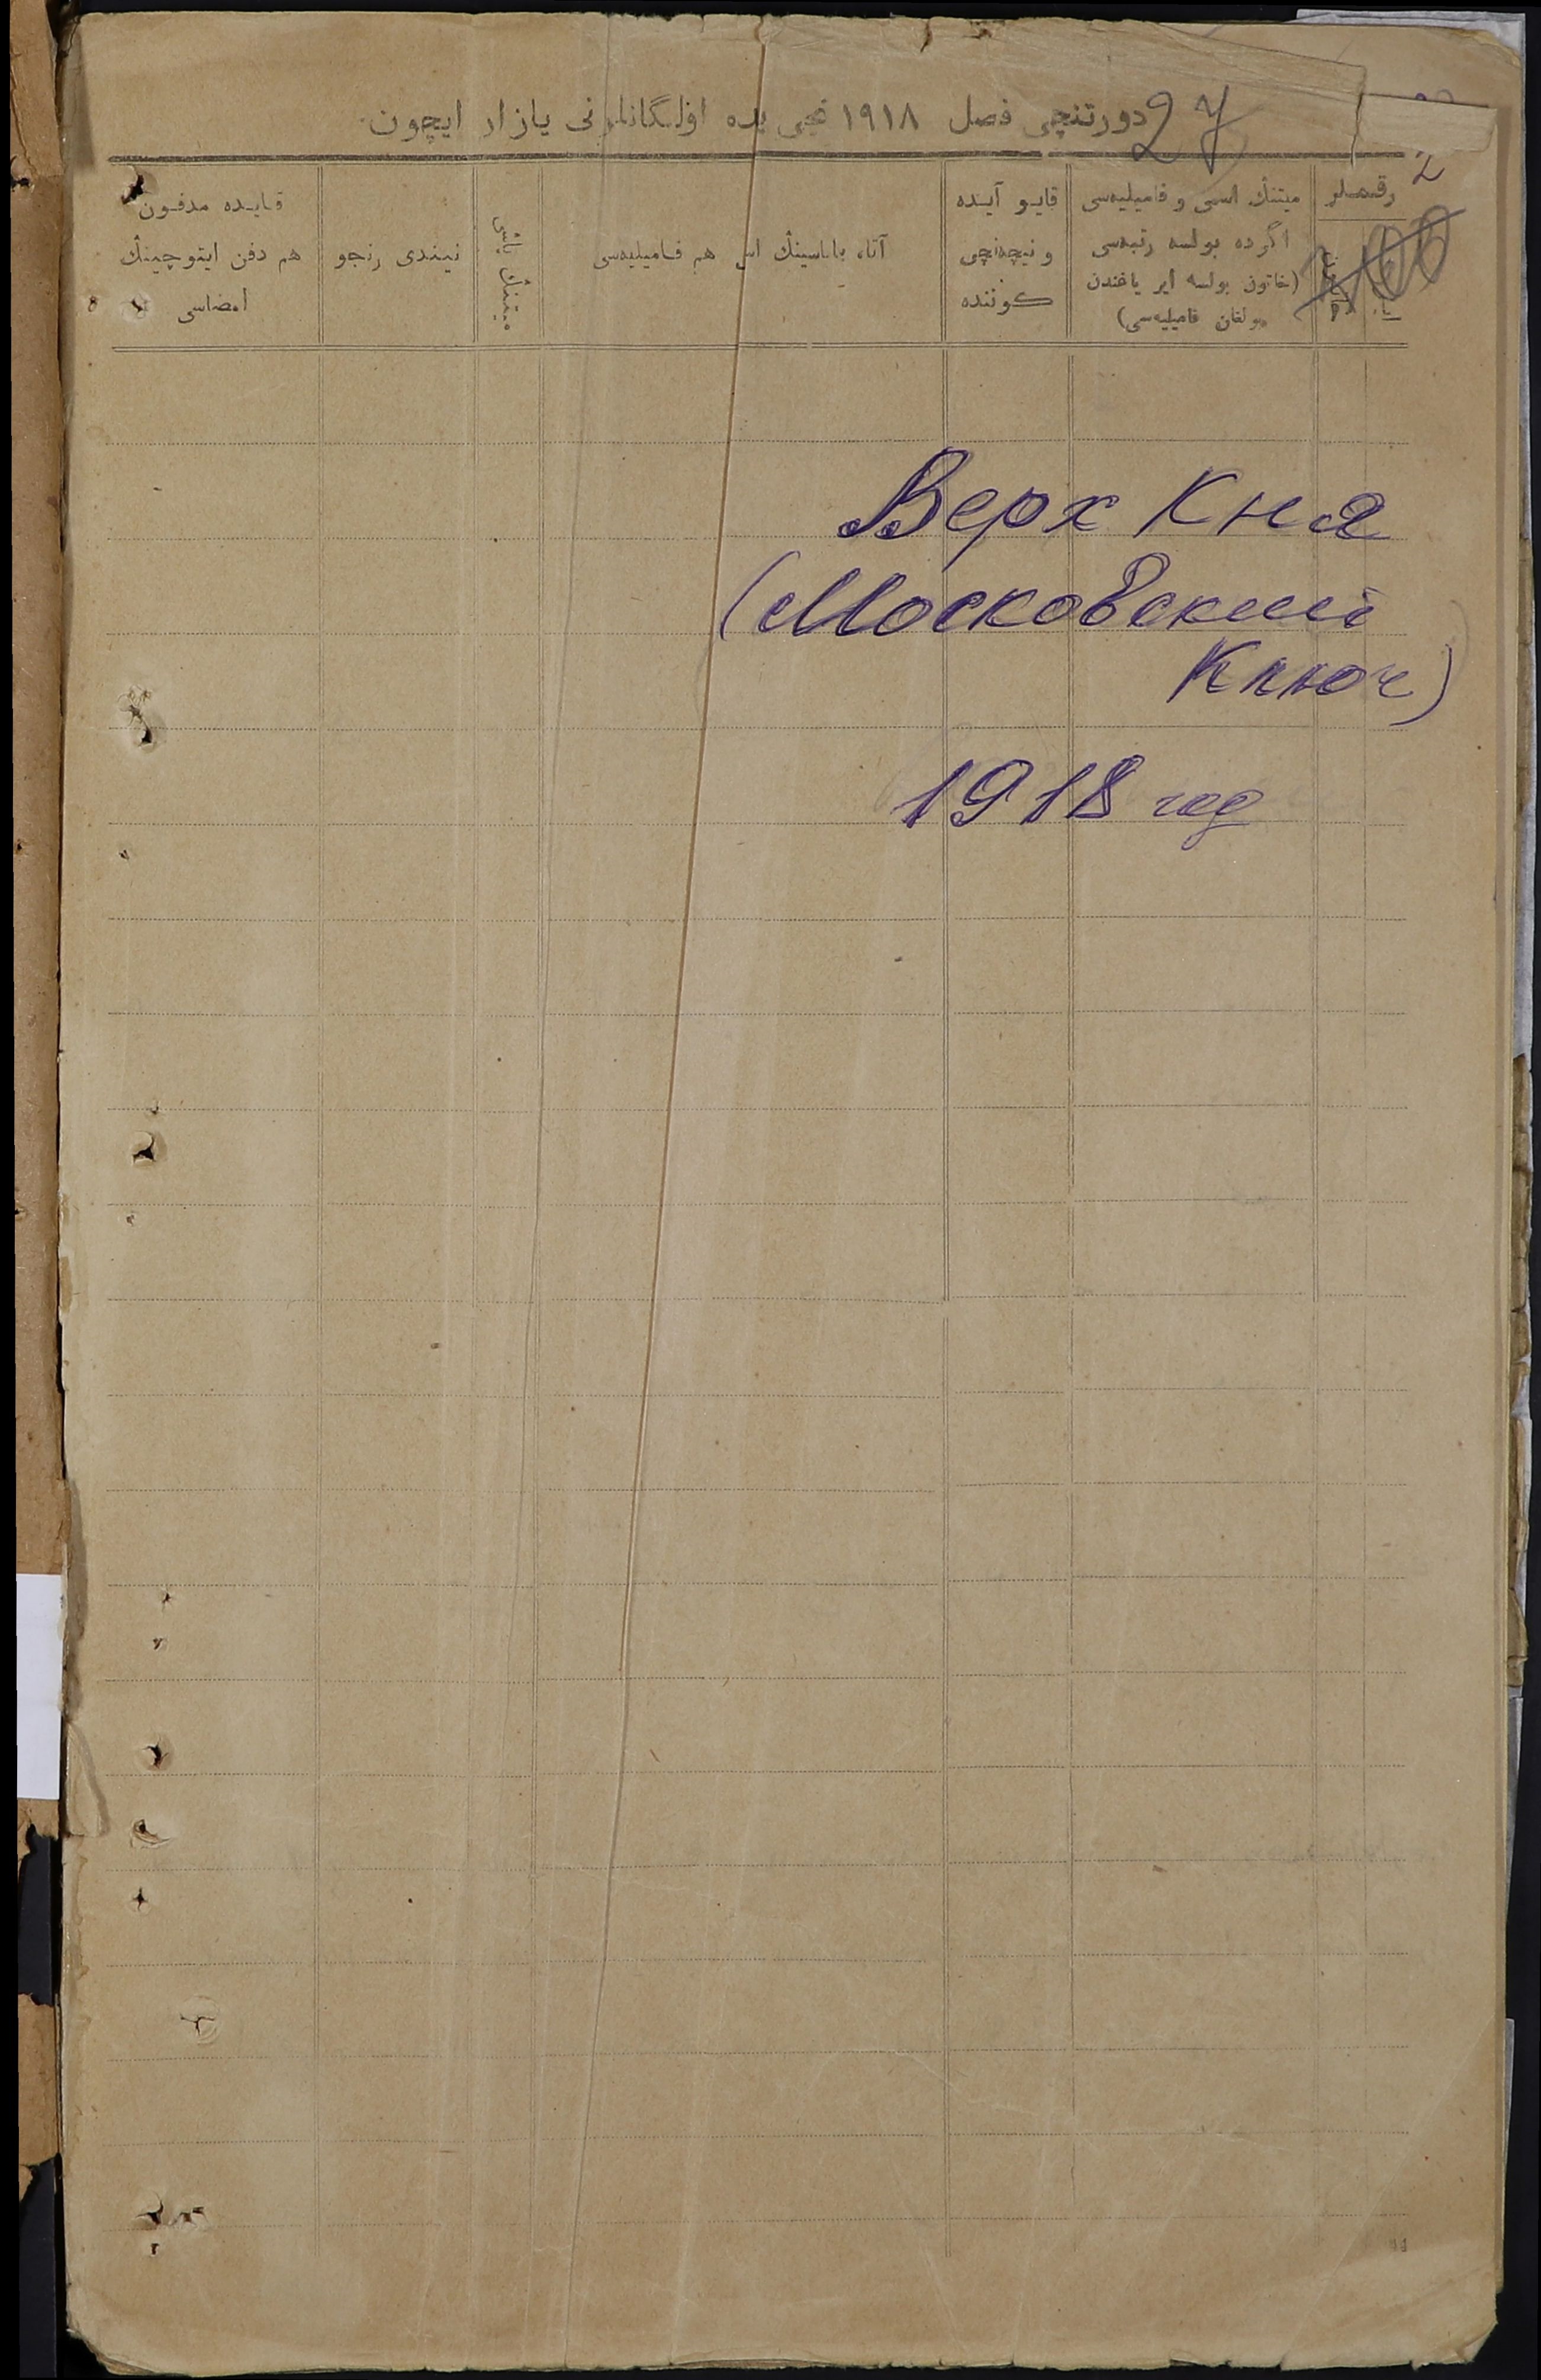 دورتنچی فصل ١٩١٨ نچی یلده اولگانلرنی یازار ایچون
27
2
رقملر
میتنڭ اسمی و فامیلیه‌سی
اگرده بولسه رتبه‌سی
(خاتون بولسه ایر یاغندن
بولغان فامیلیه‌سی)
قایو آیده
و نیچه‌نچی
کوننده
آتا، باباسینڭ اسم هم فامیلیه‌سی
میتنڭ یاشی
نیندی رنجو
قایده مدفون
هم دفن ایتوچینڭ
امضاسی
Верх Кня
(Московский
Ключ)
1918 год